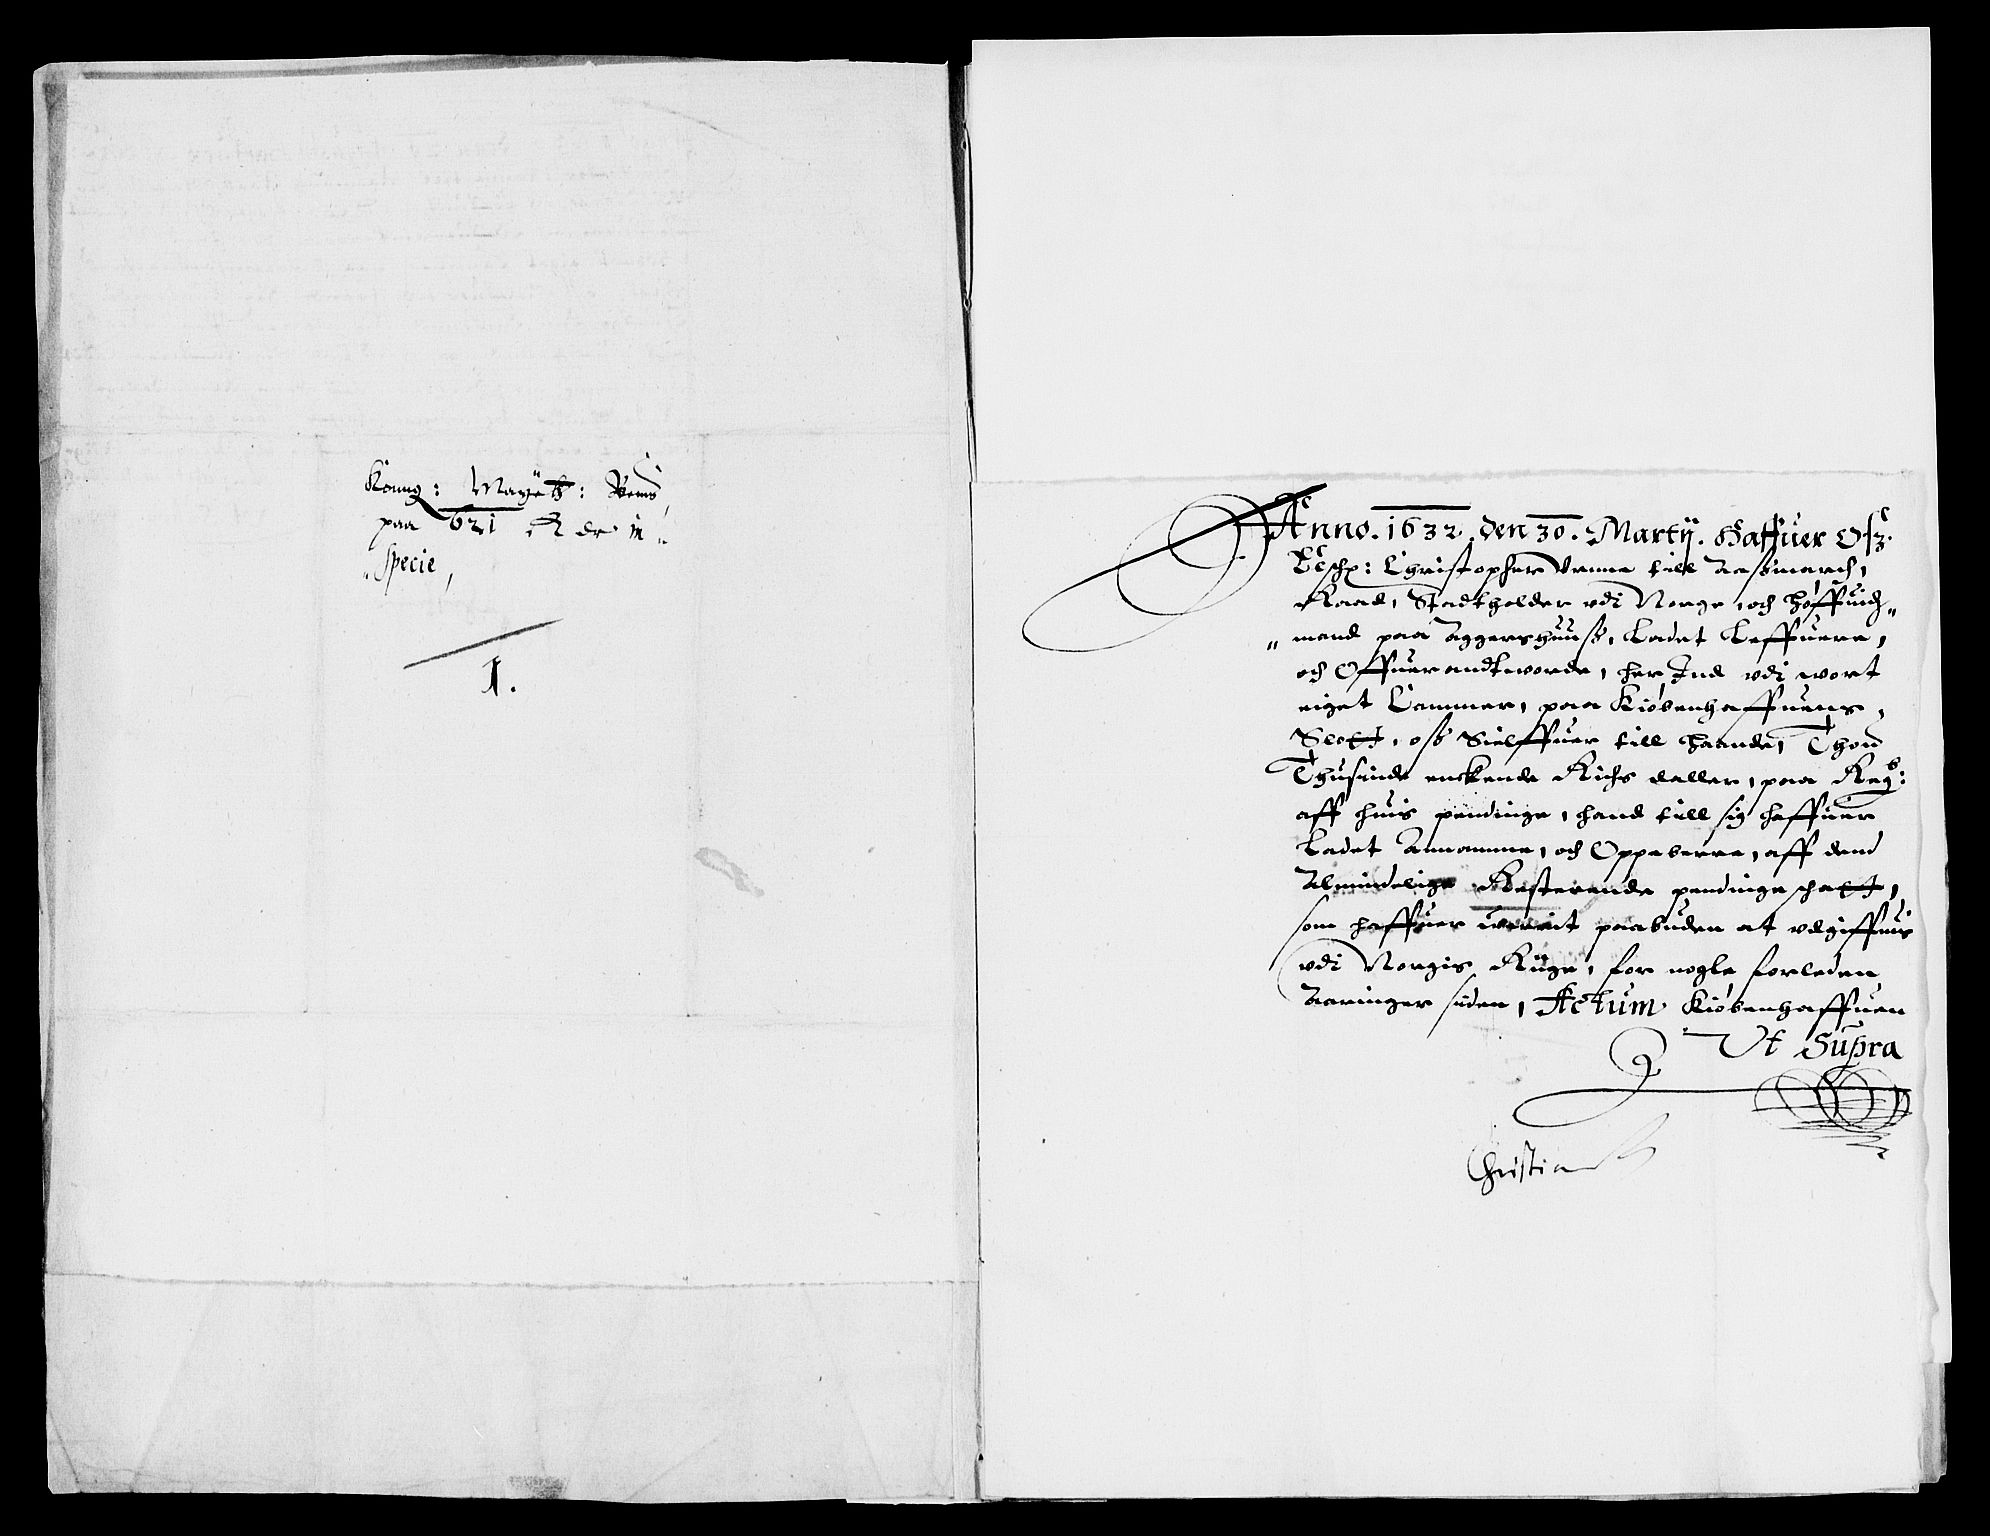 Konng: Mayetz:
paa 621 Rdr in
Specie,
1.
Anno. 1632. den 30. Martij. Haffuer Osz
Elsch: Christopher Vrnne till Aasmarch,
Raad, Stadtholder vdi Norge, och höffuidz
mand paa Aggershuus, Ladet Leffuere,
och Offuerandtworde, her Ind vdi wort
eiget Cammer, paa Kiøbenhaffuens
Slott, osz Sielffuer till haande, Thou
Thusinde enckende Richs daller, paa Regsz:
aff huis pendinge, hand till sig haffuer
Ladet Annamme, och Oppeberre, aff dend
Almindelige Resterende pendinge schatt,
som haffuer werrit paabuden at vdgiffuis
vdi Norgis Rüge, for nogle forleden
Aaringer siden, Actum Kiøbenhaffuen
Ut Supra
Christian